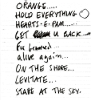 ORANGE....
HOLD EVERYTHING
HEARTS. E. PAM...
GET U BACK...
alive again...
ON THE SHORE...
LEVITATE...
STARE AT THE SKY.